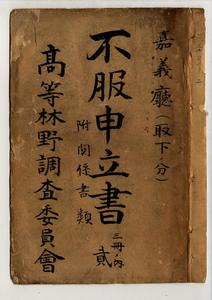 嘉義廳(取下ノ分)
不服申立書
附関係書類
三冊ノ内
貳
高等林野調査委員會